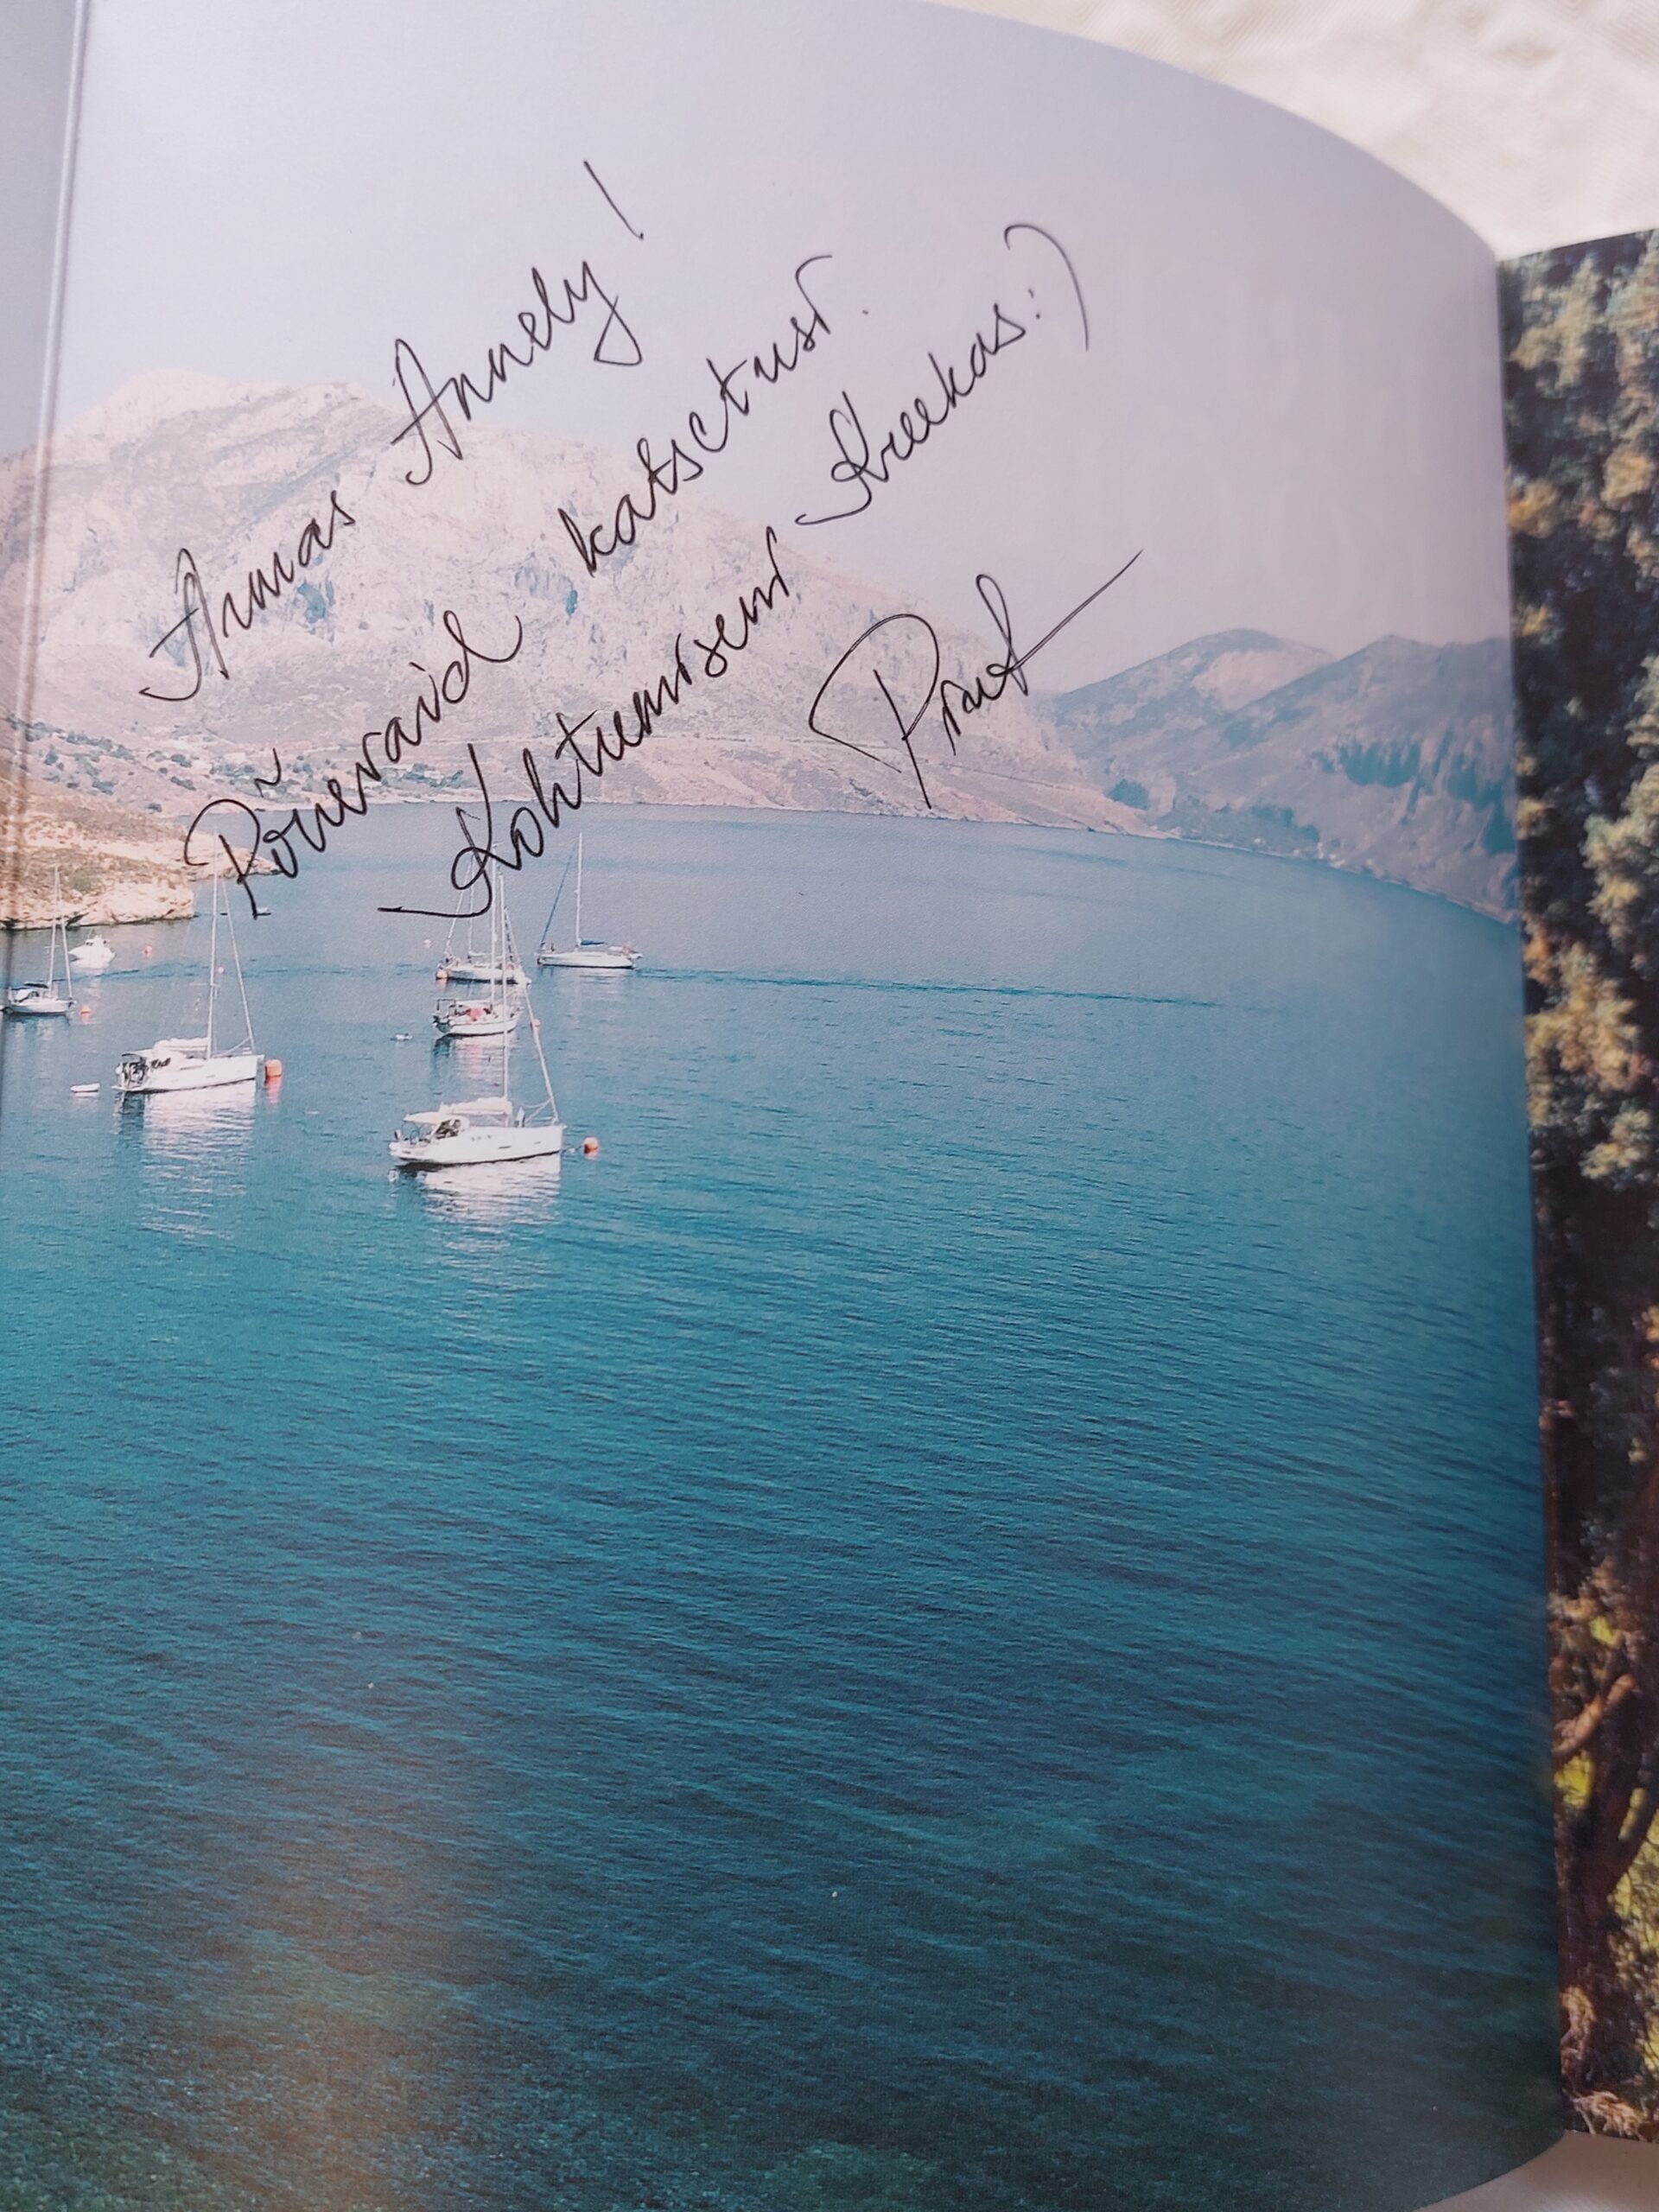 Armas Annely!
Põnevaid katsetusi.
Kohtumiseni Kreekas:)